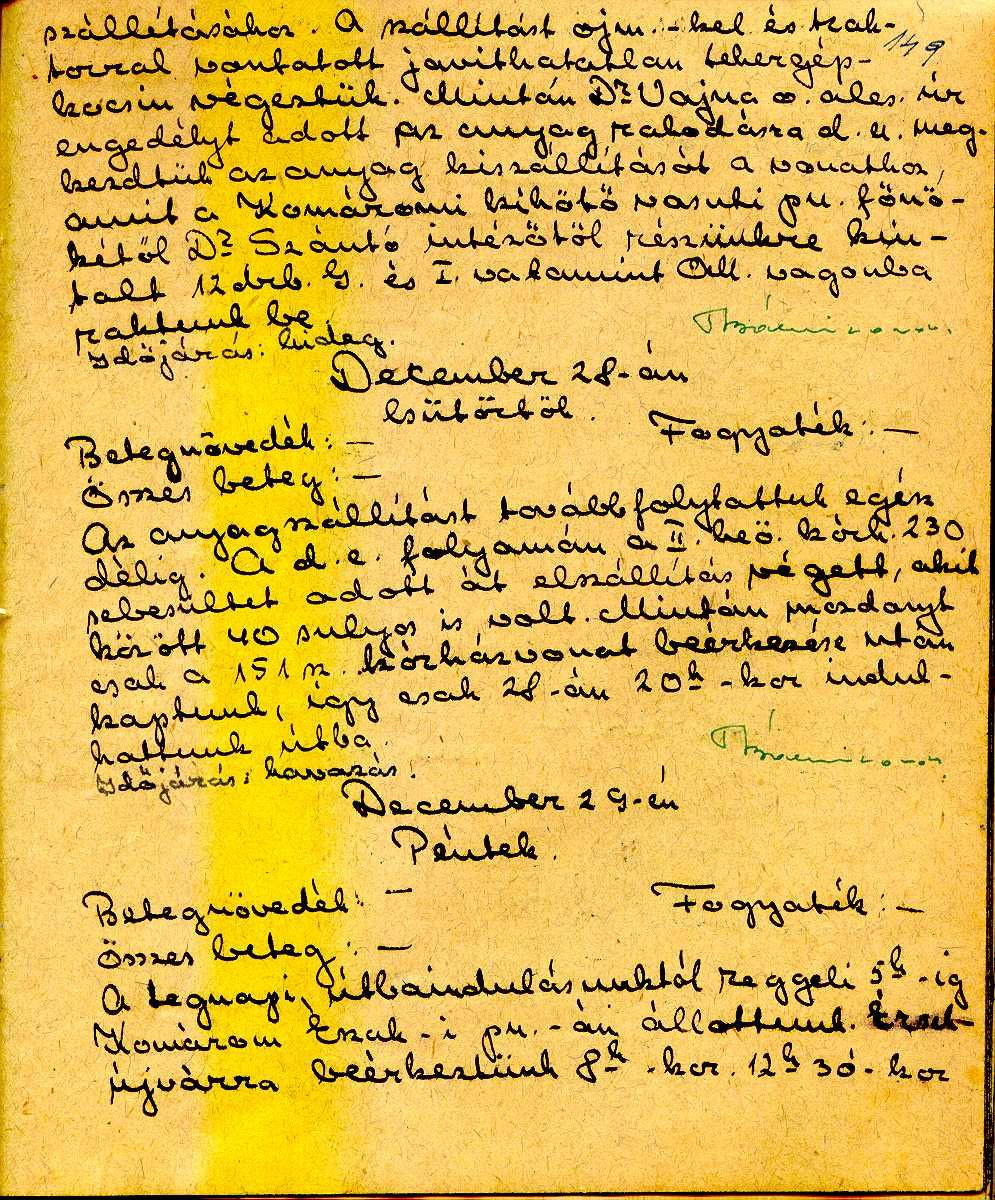 szállításához. A szállítást ojm. - kel és trak-
149
torral vontatott javithatatlan tehergép-
kocsin végeztük. Miután Dr Vajna o. ales. úr
engedélyt adott az anyag rakodásra d. u. meg-
kezdtük az anyag kiszállítását a vonathoz,
amit a Komáromi kikötő vasuti pu. főnö-
kétől Dr Szántó intézőtől részünkre kiu-
talt 12 drb. G. és I. valamint Oll. vagonba
raktunk be.
Időjárás: hideg.
December 28-án
Csütörtök.
Betegnövedék: - Fogyaték: -
Összes beteg: -
Az anyagszállítást továbbfolytattuk egész
délig. A d. e. folyamán a II. heö. kórh. 230
sebesültet adott át elszállítás végett, akik
között 40 sulyos is volt. Miután mozdonyt
csak a 151 sz. kórházvonat beérkezése után
kaptunk, így csak 28-án 20h - kor indul-
hattunk útba.
Időjárás: havazás.
December 29-én
Péntek.
Betegnövedék: - Fogyaték: -
Összes beteg: -
A tegnapi, útbaindulásunktól reggeli 5h - ig
Komárom Észak - i pu. - án állottunk. Érsek-
újvárra beérkeztünk 8h - kor. 12h 30 - kor